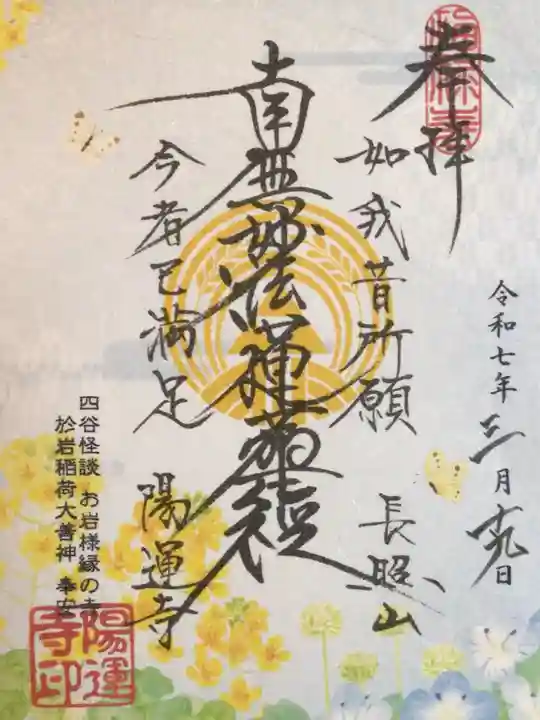 奉拝
令和七年三月十九日
如我昔所願 長照山
南無妙法蓮華経
今者已満足 陽運寺
四谷怪談 お岩様縁の寺
於岩稲荷大善神 奉安
陽運寺印